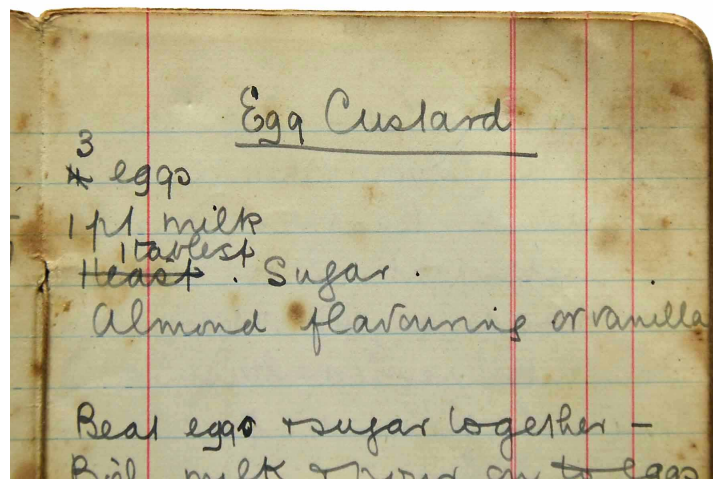 Egg Custard
3
eggs
1 pt milk
1 tablesp
. Sugar .
Almond flavouring or vanilla
Beat eggs + sugar together –
Boil milk + pour on to eggs